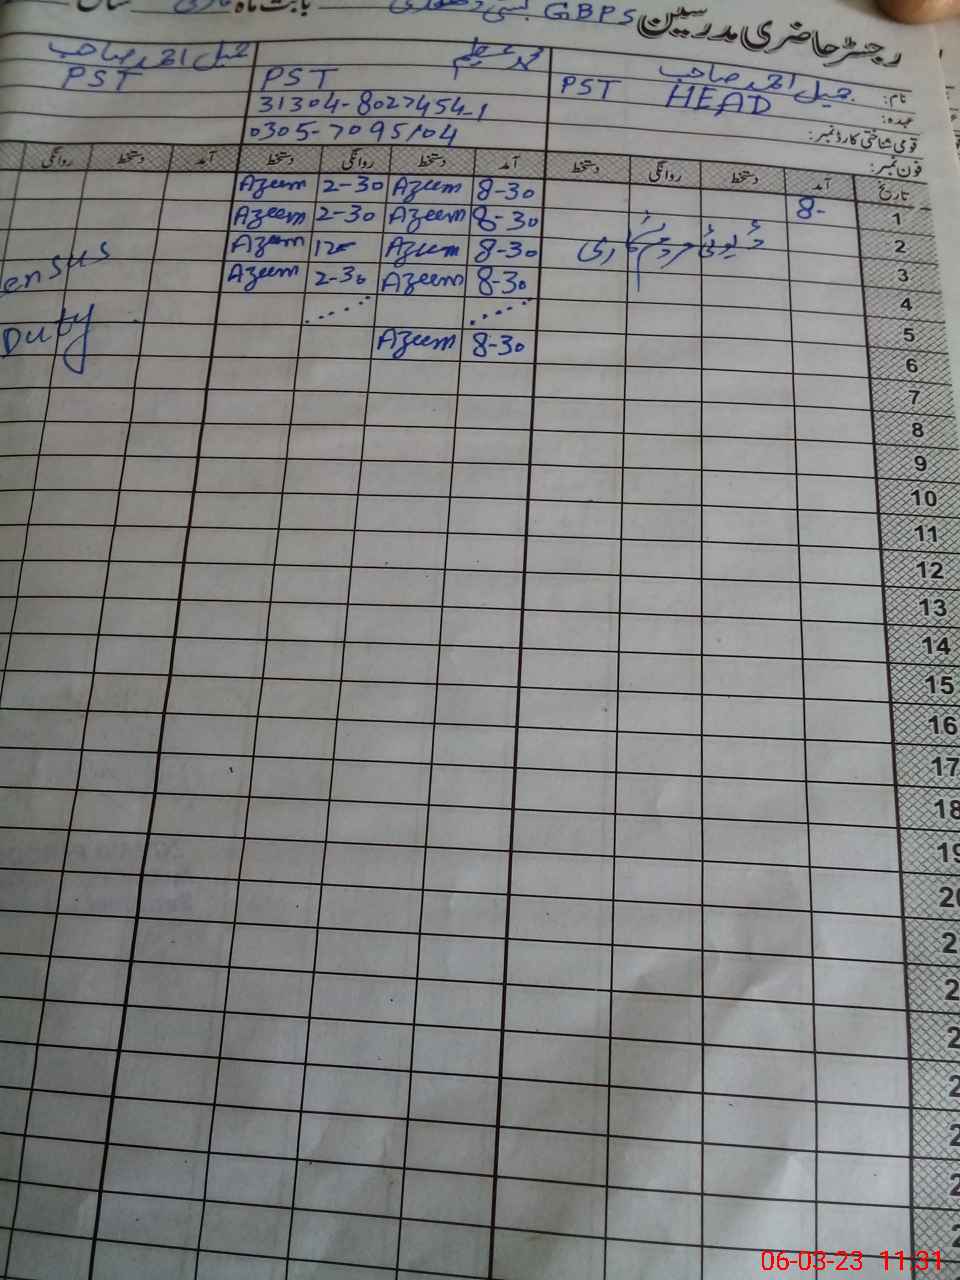 رجسٹر حاضری مدرسین GBPS بستی بابت ماہ مارچ سال
نام: جمیل احمد صاحب محمد عظیم جمیل احمد صاحب
عہدہ: PST HEAD PST PST
قومی شناختی کارڈ نمبر: 31304-8027454-1
فون نمبر: 0305-7095104
تاریخ آمد دستخط روانگی دستخط آمد دستخط روانگی دستخط آمد دستخط روانگی
1 8- 8-30 Azeem 2-30 Azeem
2 ڈیوٹی مردم شماری 8-30 Azeem 2-30 Azeem
3 8-30 Azeem 12- Azeem ensus
4 8-30 Azeem 2-30 Azeem
5 Duty
6 8-30 Azeem
7
8
9
10
11
12
13
14
15
16
17
18
19
20
2
2
2
2
2
2
2
2
06-03-23 11:31